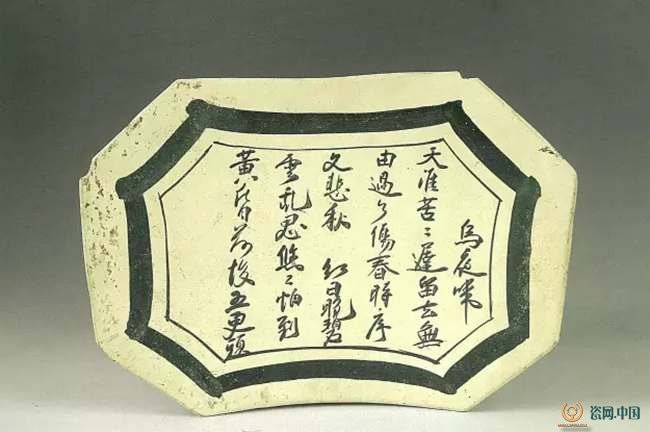 烏夜啼
天涯苦〻遲留去無
由過了傷春時序
又悲秋 紅日晚碧
雲亂思悠〻怕到
黃昏前後五更頭
瓷网.中国